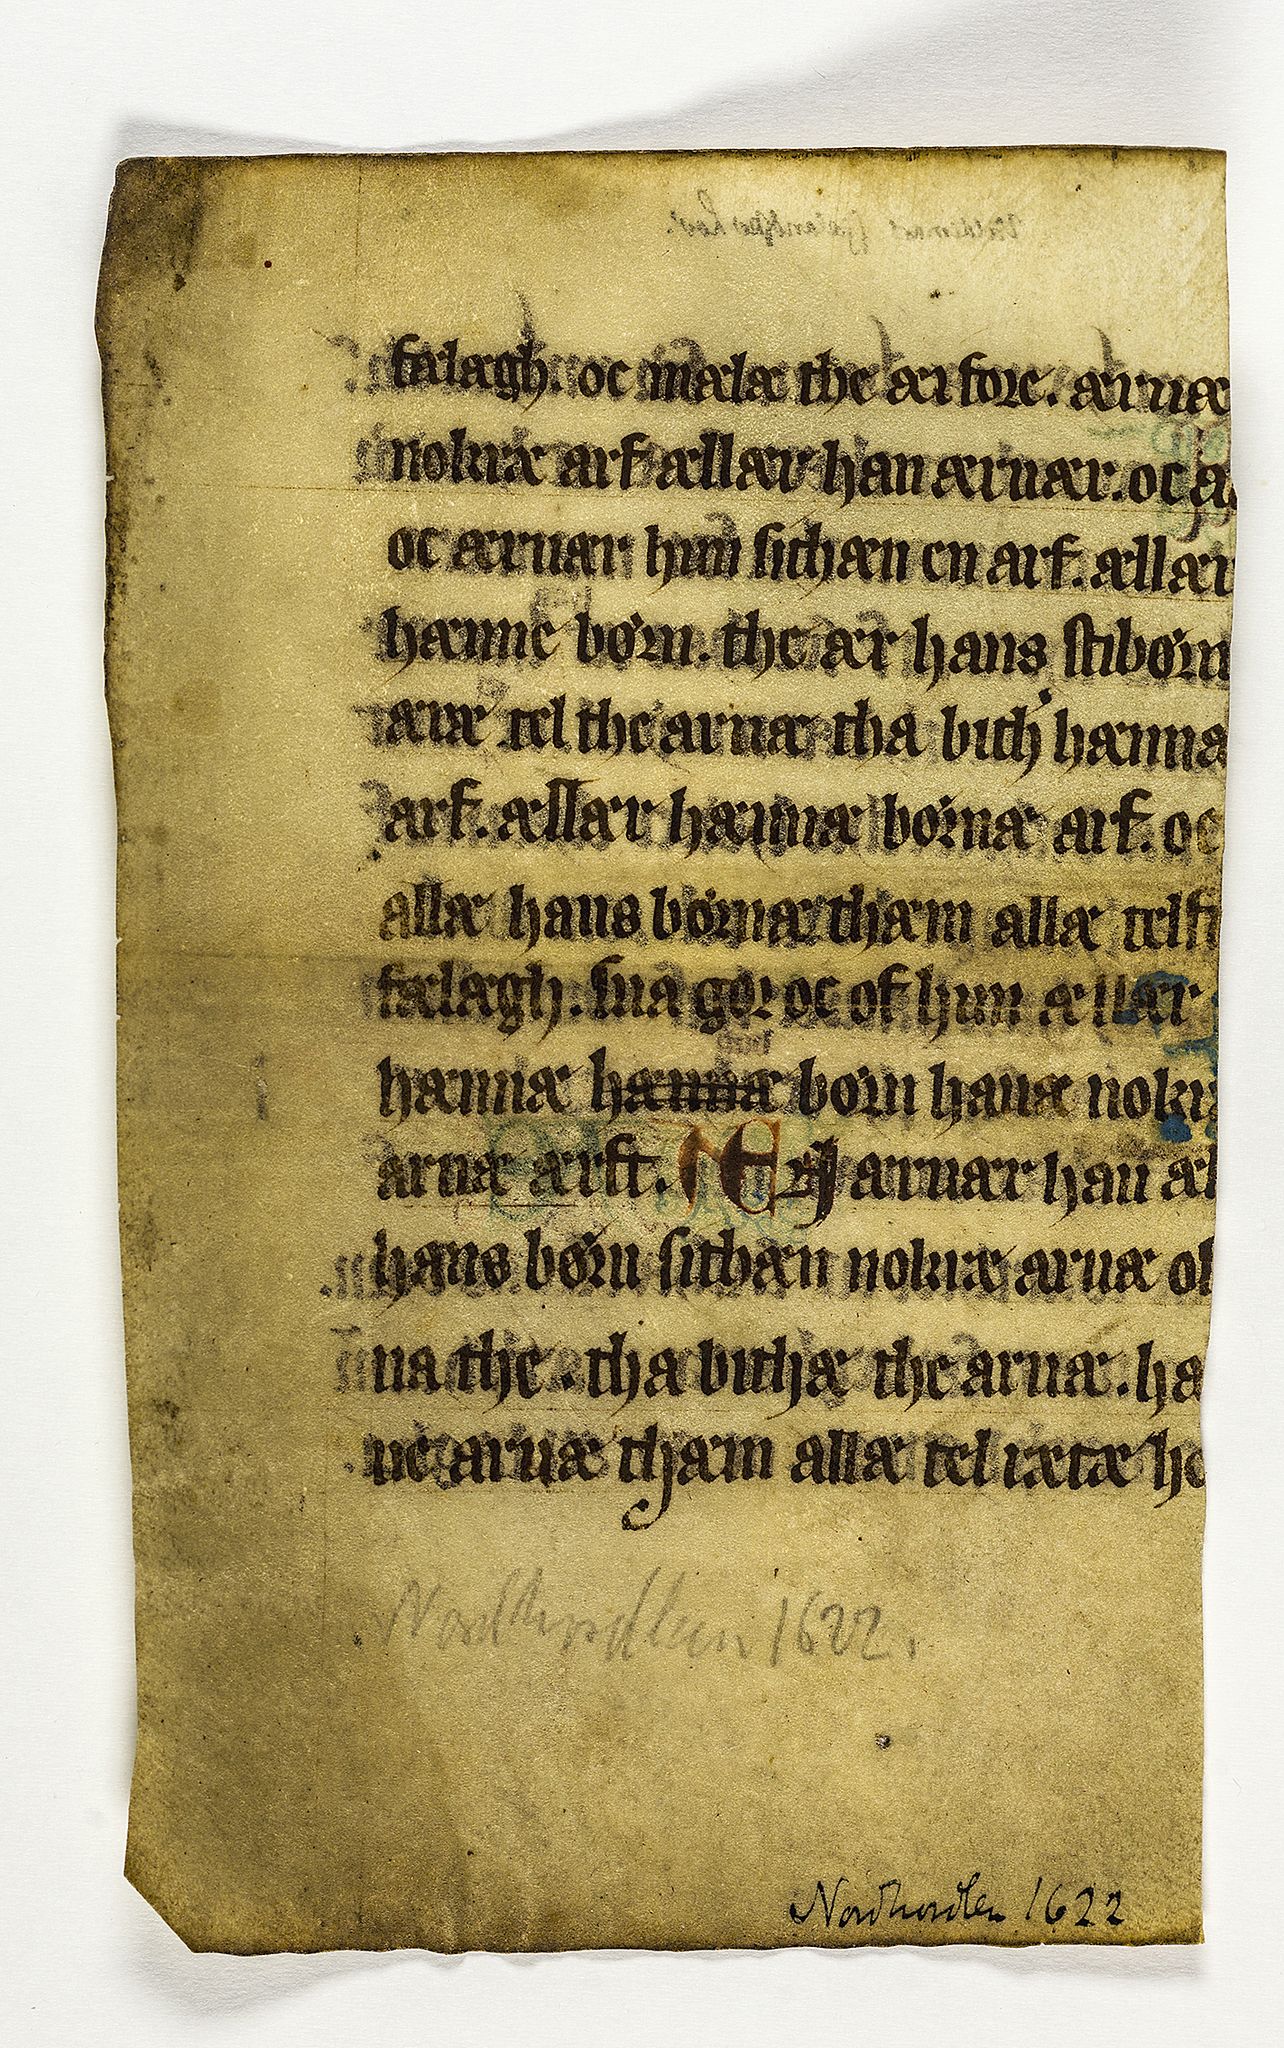 fælægh. oc mælæ the ær fore. æruæ
nokræ arf ællær han æruær. oc
oc æruær hun sithæn en arf. ællær
hænne børn. the ær hans stibørn
æræ tel the aruæ tha bith hænnæ
arf. ællær hænnæ børnæ arf. oc
allæ hans børnæ thæm allæ telf
fælægh. sua gør oc of hun ællær
hænnæ hænnæ børn hauæ nokræ
aruæ ærft. EN aruær han æl
hans børn sithæn nokræ aruæ of
ua the. tha bithæ the aruæ. ha
ue aruæ thæm allæ tel iætæ ho
Nordhordlen 1622.
Nordhordlen 1622